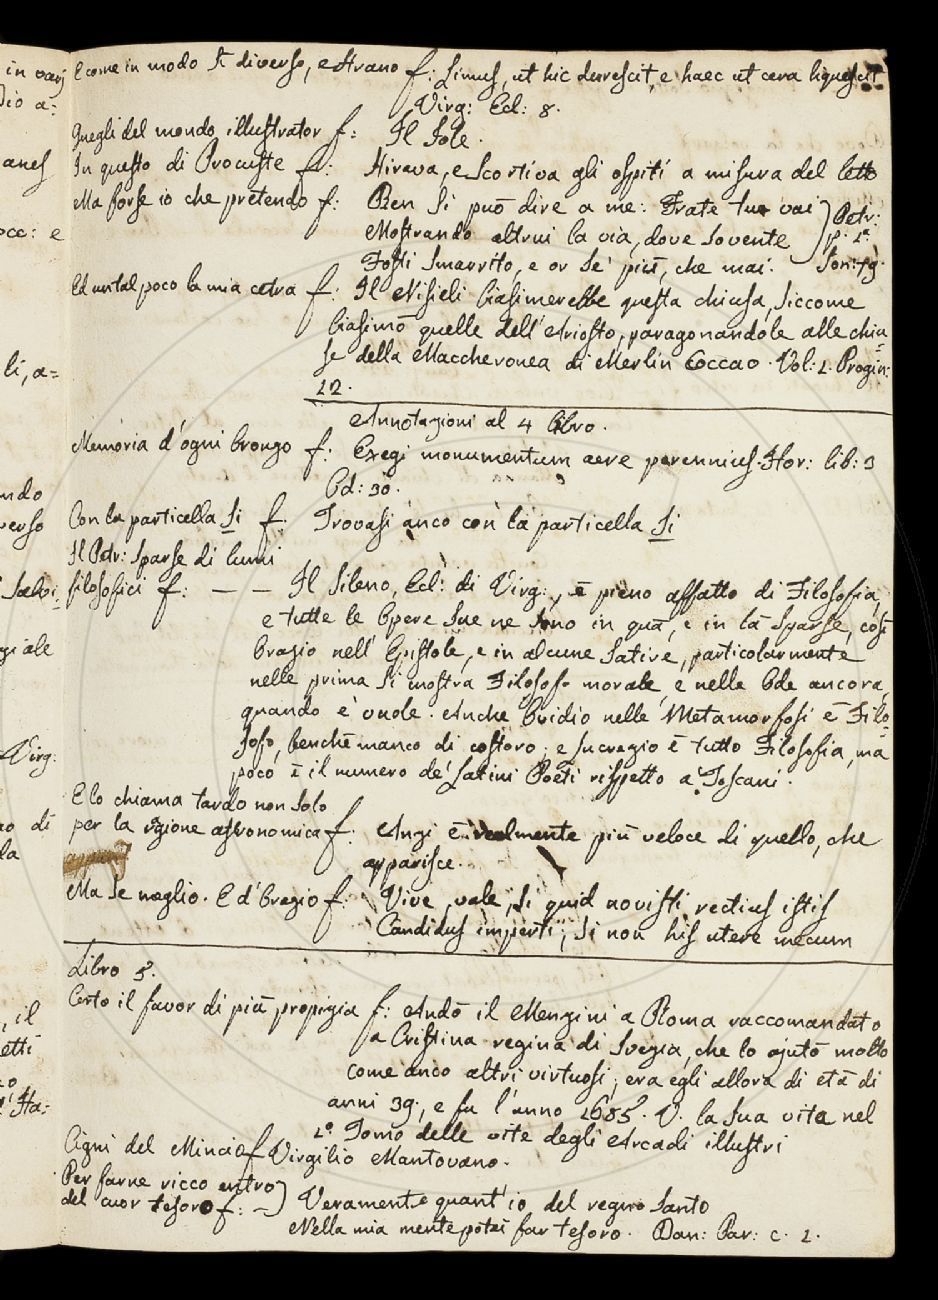 in varj
Dio a:
anes
occ: e
li, a=
ndo
verso
Salvi
gi ale
Virg.
ao di
la
, il
etti
Ita:
E come in modo sì diverso, e strano f: Limus, ut hic durescit, e haec ut cera liquescit
Virg: Ecl: 8.
Quegli del mondo illustrator f: Il Sole.
In questo di Procuste f: Stirava, e scortiva gli ospiti a misura del letto
Ma forse io che pretendo f: Ben si può dire a me: Frate tu vai
Mostrando altrui la via, dove sovente
Fosti smarrito, e or se' più, che mai.
Petr:
p. 1ª.
Son: 79.
Ed un tal poco la mia cetra f: Il Nisieli biasimerebbe questa chiusa, siccome
biasimò quelle dell'Ariosto, paragonandole alle chiu
se della Maccheronea di Merlin Coccao. Vol: 1. Progin:
22.
Annotazioni al 4 libro.
Memoria d'ogni bronzo f: Exegi monumentum aere perennius. Hor: lib: 3
Od: 30.
Con la particella si f. Trovasi anco con la particella si
Il Petr: sparse di lumi
filosofici f: — — Il Sileno, Ecl: di Virg:, è pieno affatto di Filosofia,
e tutte le Opere sue ne sono in quà, e in là sparse, così
Orazio nell'Epistole, e in alcune Satire, particolarmente
nelle prima si mostra Filosofo morale, e nelle Ode ancora,
quando e' vuole. Anche Ovidio nelle Metamorfosi è Filo=
sofo, benchè manco di costoro; e Lucrezio è tutto Filosofia, ma
poco è il numero de' Latini Poeti rispetto a' Toscani.
E lo chiama tardo non solo
per la rgione astronomica f. Anzi è realmente più veloce di quello, che
apparisce.
Ma se meglio. E d'Orazio f: Vive, vale, si quid novisti rectius istis
Candidus imperti; si non his utere mecum
Libro 5.
Certo il favor di più propizia f: Andò il Menzini a Roma raccomandato
a Cristina regina di Svezia, che lo ajutò molto
come anco altri virtuosi; era egli allora di età di
anni 39., e fu l'anno 1685. V. la sua vita nel
1º Tomo delle vite degli Arcadi illustri
Cigni del Mincio f Virgilio Mantovano.
Per farne ricco entro
del cuor tesoro f: — Veramente quant'io del regno santo
Nella mia mente potei far tesoro. Dan: Par: c. 1.